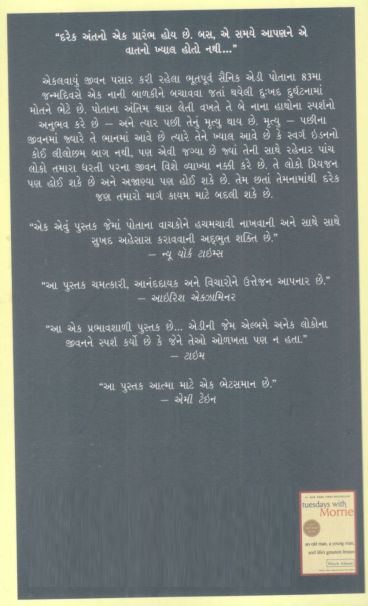 “દરેક અંતનો એક પ્રારંભ હોય છે. બસ, એ સમયે આપણને એ
વાતનો ખ્યાલ હોતો નથી...”
એકલવાયું જીવન પસાર કરી રહેલા ભૂતપૂર્વ સૈનિક એડી પોતાના 83મા
જન્મદિવસે એક નાની બાળકીને બચાવવા જતાં થયેલી દુઃખદ દુર્ઘટનામાં
મોતને ભેટે છે. પોતાના અંતિમ શ્વાસ લેતી વખતે તે બે નાના હાથોના સ્પર્શનો
અનુભવ કરે છે – અને ત્યાર પછી તેનું મૃત્યુ થાય છે. મૃત્યુ – પછીના
જીવનમાં જ્યારે તે ભાનમાં આવે છે ત્યારે તેને ખ્યાલ આવે છે કે સ્વર્ગ ઇડનનો
કોઈ લીલોછમ બાગ નથી, પણ એવી જગ્યા છે જ્યાં તેની સાથે રહેનાર પાંચ
લોકો તમારા ધરતી પરના જીવન વિશે વ્યાખ્યા નક્કી કરે છે. તે લોકો પ્રિયજન
પણ હોઈ શકે છે અને અજાણ્યા પણ હોઈ શકે છે. તેમ છતાં તેમનામાંથી દરેક
જણ તમારો માર્ગ કાયમ માટે બદલી શકે છે.
“એક એવું પુસ્તક જેમાં પોતાના વાચકોને હચમચાવી નાખવાની અને સાથે સાથે
સુખદ અહેસાસ કરાવવાની અદ્ભુત શક્તિ છે.”
– ન્યૂ યૉર્ક ટાઇમ્સ
“આ પુસ્તક ચમત્કારી, આનંદદાયક અને વિચારોને ઉત્તેજન આપનાર છે.”
– આઇરિશ એક્ઝામિનર
“આ એક પ્રભાવશાળી પુસ્તક છે... એડીની જેમ એલ્બમે અનેક લોકોના
જીવનને સ્પર્શ કર્યો છે કે જેને તેઓ ઓળખતા પણ ન હતા.”
– ટાઇમ
“આ પુસ્તક આત્મા માટે એક ભેટસમાન છે.”
– એમી ટેઇન
tuesdays with
Morrie
an old man, a young man,
and life's greatest lesson
Mitch Albom